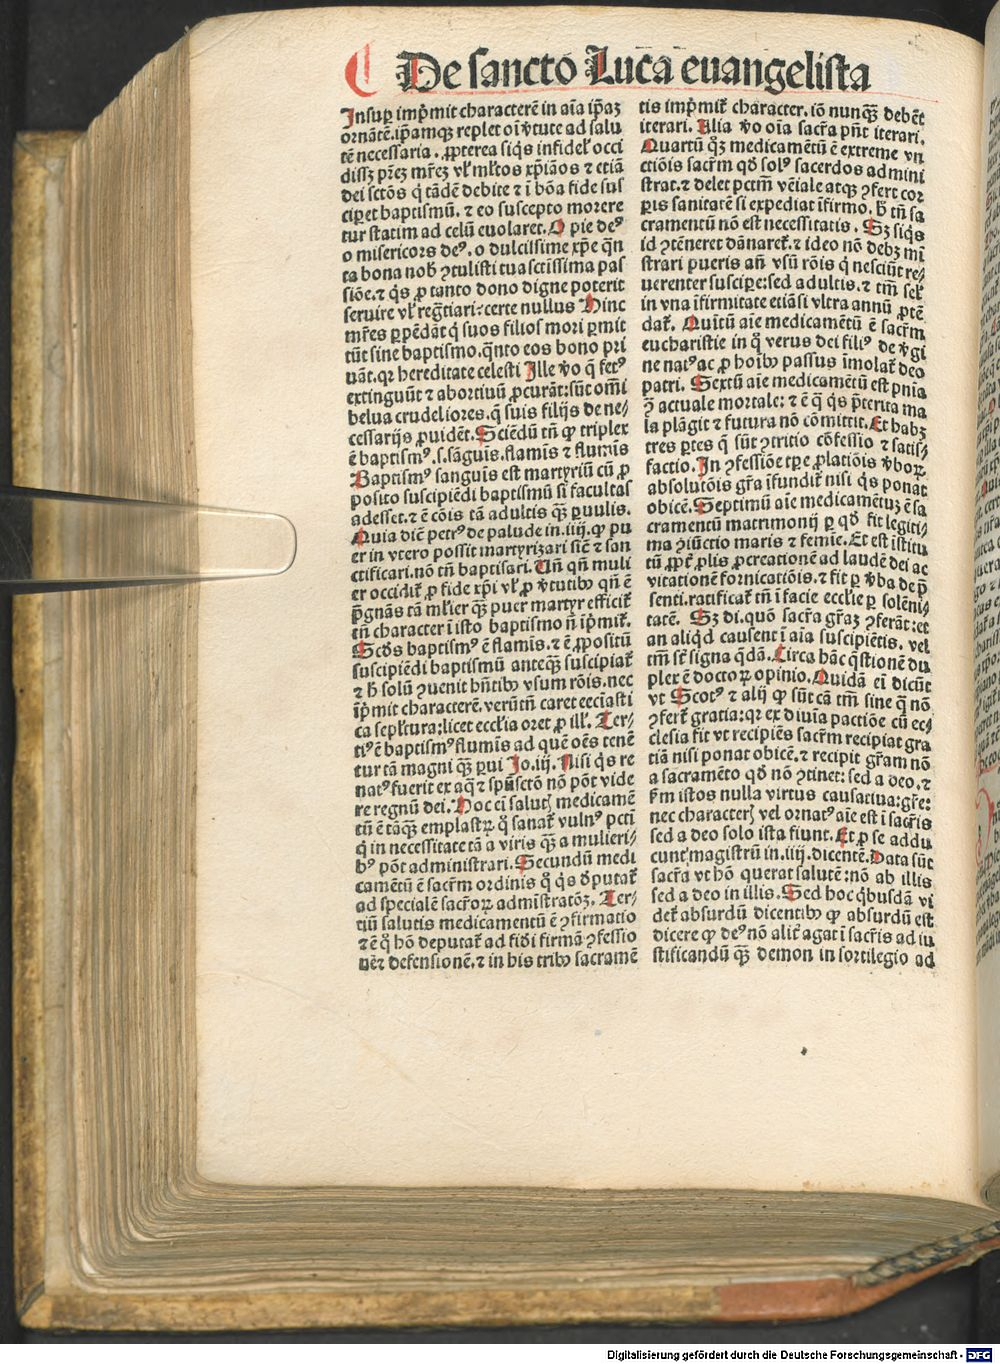 De sancto Luca euangelista
Insuꝑ imp̃mit characterē in aĩa ip̃aꝫ
ornãtē.ip̃amqꝫ replet oĩ v̓tute ad salu
tē necessaria. ꝓpterea siqͥs infidel̓ occi
dissꝫ pr̃eꝫ mr̃eꝫ vl̓ ml̓tos xp̃iãos ⁊ etiã
dei sctõs q̇ tãdē debite ⁊ ĩ bõa fide sus
ciꝑet baptismũ. ⁊ eo suscepto morere
tur statim ad celũ euolaret. O pie deꝰ
o misericors deꝰ. o dulcissime xp̃e qͣn
ta bona nob̓ ꝯtulisti tua sctissima pas
siõe.⁊ qͥs ꝓ tanto dono digne poterit
seruire vl̓ reg̃tiari: certe nullus Hinc
mr̃es ꝑpēdãt q̇ suos filios mori ꝑmit
tũt sine baptismo.qͣnto eos bono pri
uãt.qꝛ hereditate celesti Ille v̓o q̃ fetꝰ
extinguũt ⁊ abortiuũ ꝓcurãt: sũt om̃i
belua crudeliores.q̇ suis filijs de ne/
cessarijs ꝓuidēt. Sciēdũ tñ ꝙ triplex
ē baptismꝰ.s.sãguis.flamĩs ⁊ flumĩs
Baptismꝰ sanguĩs est martyriũ cũ ꝓ
posito suscipiēdi baptismũ si facultas
adesset.⁊ ē cõis tã adultis qͣꝫ ꝑuulis.
Quia diē petrꝰ de palude in.iiij. ꝙ pu
er in vtero possit martyrizari siē ⁊ san
ctificari.nõ tñ baptisari. Uñ qñ muli
er occidit̃ ꝓ fide xp̃i vl̓ ꝓ v̓tutibꝰ qñ ē
p̃gnãs tã ml̓ier qͣꝫ puer martyr efficit̃
tñ character ĩ isto baptismo ñ ĩp̃mit̃.
Scd̓s baptismꝰ ē flamĩs.⁊ ē ꝓpositũ
suscipiēdi baptismũ anteqͣꝫ suscipiat̃
⁊ h̓ solũ ꝯuenit hñtibꝰ vsum rõis.nec
ĩp̃mit characterē.verũtñ caret ecc̃iasti
ca sepl̓tura: licet eccl̓ia oret ꝓ ill̓. Ter/
tiꝰ ē baptismꝰ flumĩs ad quē oēs tenē
tur tã magni qͣꝫ ꝑui Io.iij. Nisi qͥs re
natꝰ fuerit ex aqͣ ⁊ spũsctõ nõ põt vide
re regnũ dei. Hoc eĩ salutꝭ medicamē
tũ ē tãqͣꝫ emplastꝝ q̊ sanat̃ vulnꝰ pcti
q̇ in necessitate tã a viris qͣꝫ a mulieri/
bꝰ põt administrari. Secundũ medi
camētũ ē sacr̃m ordinis q̊ qͥs d̓putat̃
ad specialē sacroꝝ admistratõꝫ. Ter/
tiũ salutis medicamentũ ē ꝯfirmatio
⁊ ē q̊ hõ deputat̃ ad fid̓i firmã ꝯfessio
nēꝫ defensionē.⁊ in his tribꝰ sacramē
tis imp̃mit̃ character.iõ nunqͣꝫ debēt
iterari. Alia v̓o oĩa sacr̃a pñt iterari.
Quartũ qꝫ medicamētũ ē extreme vn
ctiõis sacr̃m qd̓ solꝰ sacerdos admini
strat.⁊ delet pctm̃ vēiale atqꝫ ꝯfert cor
ꝑis sanitatē si expediat ĩfirmo. h̓ tñ sa
cramentũ nõ est necessitatis. Sꝫ siqͥs
id ꝯtēneret dãnaret̃.⁊ ideo nõ debꝫ mĩ
strari pueris añ vsũ rõis q̇ nesciũt re/
uerenter susciꝑe: sed adultis.⁊ tm̃ sel̓
in vna ĩfirmitate etiãsi vltra annũ ꝓtē
dat̃. Quĩtũ aĩe medicamētũ ē sacr̃m
eucharistie in q̊ verus dei filiꝰ de v̓gi
ne natꝰ ac ꝓ hoĩbꝰ passus ĩmolat̃ deo
patri. Sextũ aĩe medicamētũ est pñia
ꝯ̃ actuale mortale: ⁊ ē q̃ qͥs p̃terita ma
la plãgit ⁊ futura nõ cõmittit. Et habꝫ
tres ꝑtes q̃ sũt ꝯtritio cõfessio ⁊ satis/
factio. In ꝯfessiõe tp̃e ꝓlatiõis v̓boꝝ
absolutõis gr̃a ĩfundit̃ nisi qͥs ponat
obicē. Septimũ aĩe medicamētuꝫ ē sa
cramentũ matrimonij ꝑ qd̓ fit legiti/
ma ꝯiũctio maris ⁊ femĩe. Et est ĩstitu
tũ ꝓpt̃ ꝓlis ꝓcreationē ad laudē dei ac
vitationē fornicatiõis.⁊ fit ꝑ v̓ba de p̃
senti.ratificat̃ tñ ĩ facie eccl̓ie ꝑ solēni/
tatē. Sꝫ di. quõ sacr̃a gr̃aꝫ ꝯferãt: et
an aliqd̓ causent ĩ aĩa suscipiētis. vel
tm̃ sr̃t signa q̃dã. Circa hãc q̃stionē du
plex ē doctoꝝ opinio. Quidã eĩ dicũt
vt Scotꝰ ⁊ alij ꝙ sũt cã tm̃ sine q̃ nõ
ꝯfert̃ gratia: qꝛ ex diuĩa pactiõe cũ ec/
clesia fit vt recipiēs sacr̃m recipiat gra
tiã nisi ponat obicē.⁊ recipit gr̃am nõ
a sacramēto qd̓ nõ ꝯtinet: sed a deo.⁊
ẜm istos nulla virtus causatiua: gr̃e:
nec characterꝭ vel ornatꝰ aĩe est ĩ sacr̃is
sed a deo solo ista fiunt. Et ꝓ se addu
cunt magistrũ in.iiij.dicentē. Data sũt
sacr̃a vt hõ querat salutē: nõ ab illis
sed a deo in illis. Sed hoc qͥbusdã vi
det̃ absurdũ dicentibꝰ ꝙ absurdũ est
dicere ꝙ deꝰ nõ alit̃ agat ĩ sacr̃is ad iu
stificandũ qͣꝫ demon in sortilegio ad
Digitalisierung gefördert durch die Deutsche Forschungsgemeinschaft - DFG